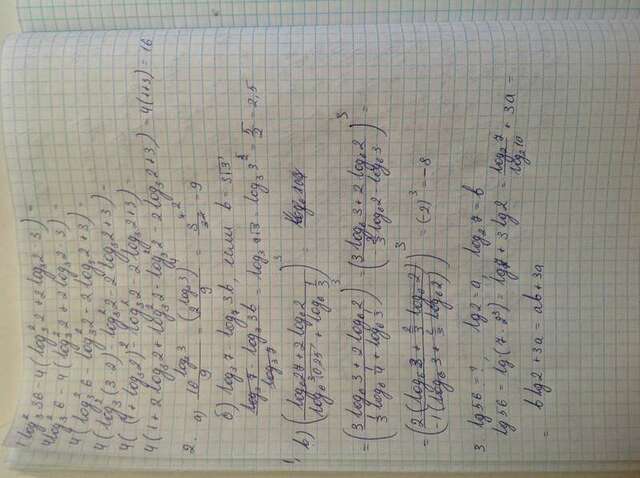 log₃² 36 - 4(log₃² 2 + 2 log₃ 2 - 3) =
4 log₃² 6 - 4(log₃² 2 + 2 log₃ 2 - 3) =
4(log₃² 6 - log₃² 2 - 2 log₃ 2 + 3) =
4(log₃² (3·2) - log₃² 2 - 2 log₃ 2 + 3) =
4((1 + log₃ 2)² - log₃² 2 - 2 log₃ 2 + 3) =
4(1 + 2 log₃ 2 + log₃² 2 - log₃² 2 - 2 log₃ 2 + 3) = 4(1+3) = 16
2. а) 16^(log₂ 3) / 9 = (2^(log₂ 3))⁴ / 9 = 3⁴ / 3² = 9
б) log₃ 7 · log₇ 3b, если b = 3√3
log₃ 7 · log₃ 3b / log₃ 7 = log₃ 9√3 = log₃ 3^(5/2) = 5/2 = 2,5
в) ((log₆ 27 + 2 log₆ 2) / (log₆ ∛0,25 + log₆ 1/3))³ =
= ((3 log₆ 3 + 2 log₆ 2) / (1/3 log₆ 1/4 + log₆ 1/3))³ = ((3 log₆ 3 + 2 log₆ 2) / (2/3 log₆ 2 - log₆ 3))³ =
= (2(log₆ 3 + 2/3 log₆ 2) / -1(log₆ 3 + 2/3 log₆ 2))³ = (-2)³ = -8
3. lg 56 = ?, lg 2 = a, log₂ 7 = b
lg 56 = lg(7·2³) = lg 7 + 3 lg 2 = log₂ 7 / log₂ 10 + 3a =
= b lg 2 + 3a = ab + 3a